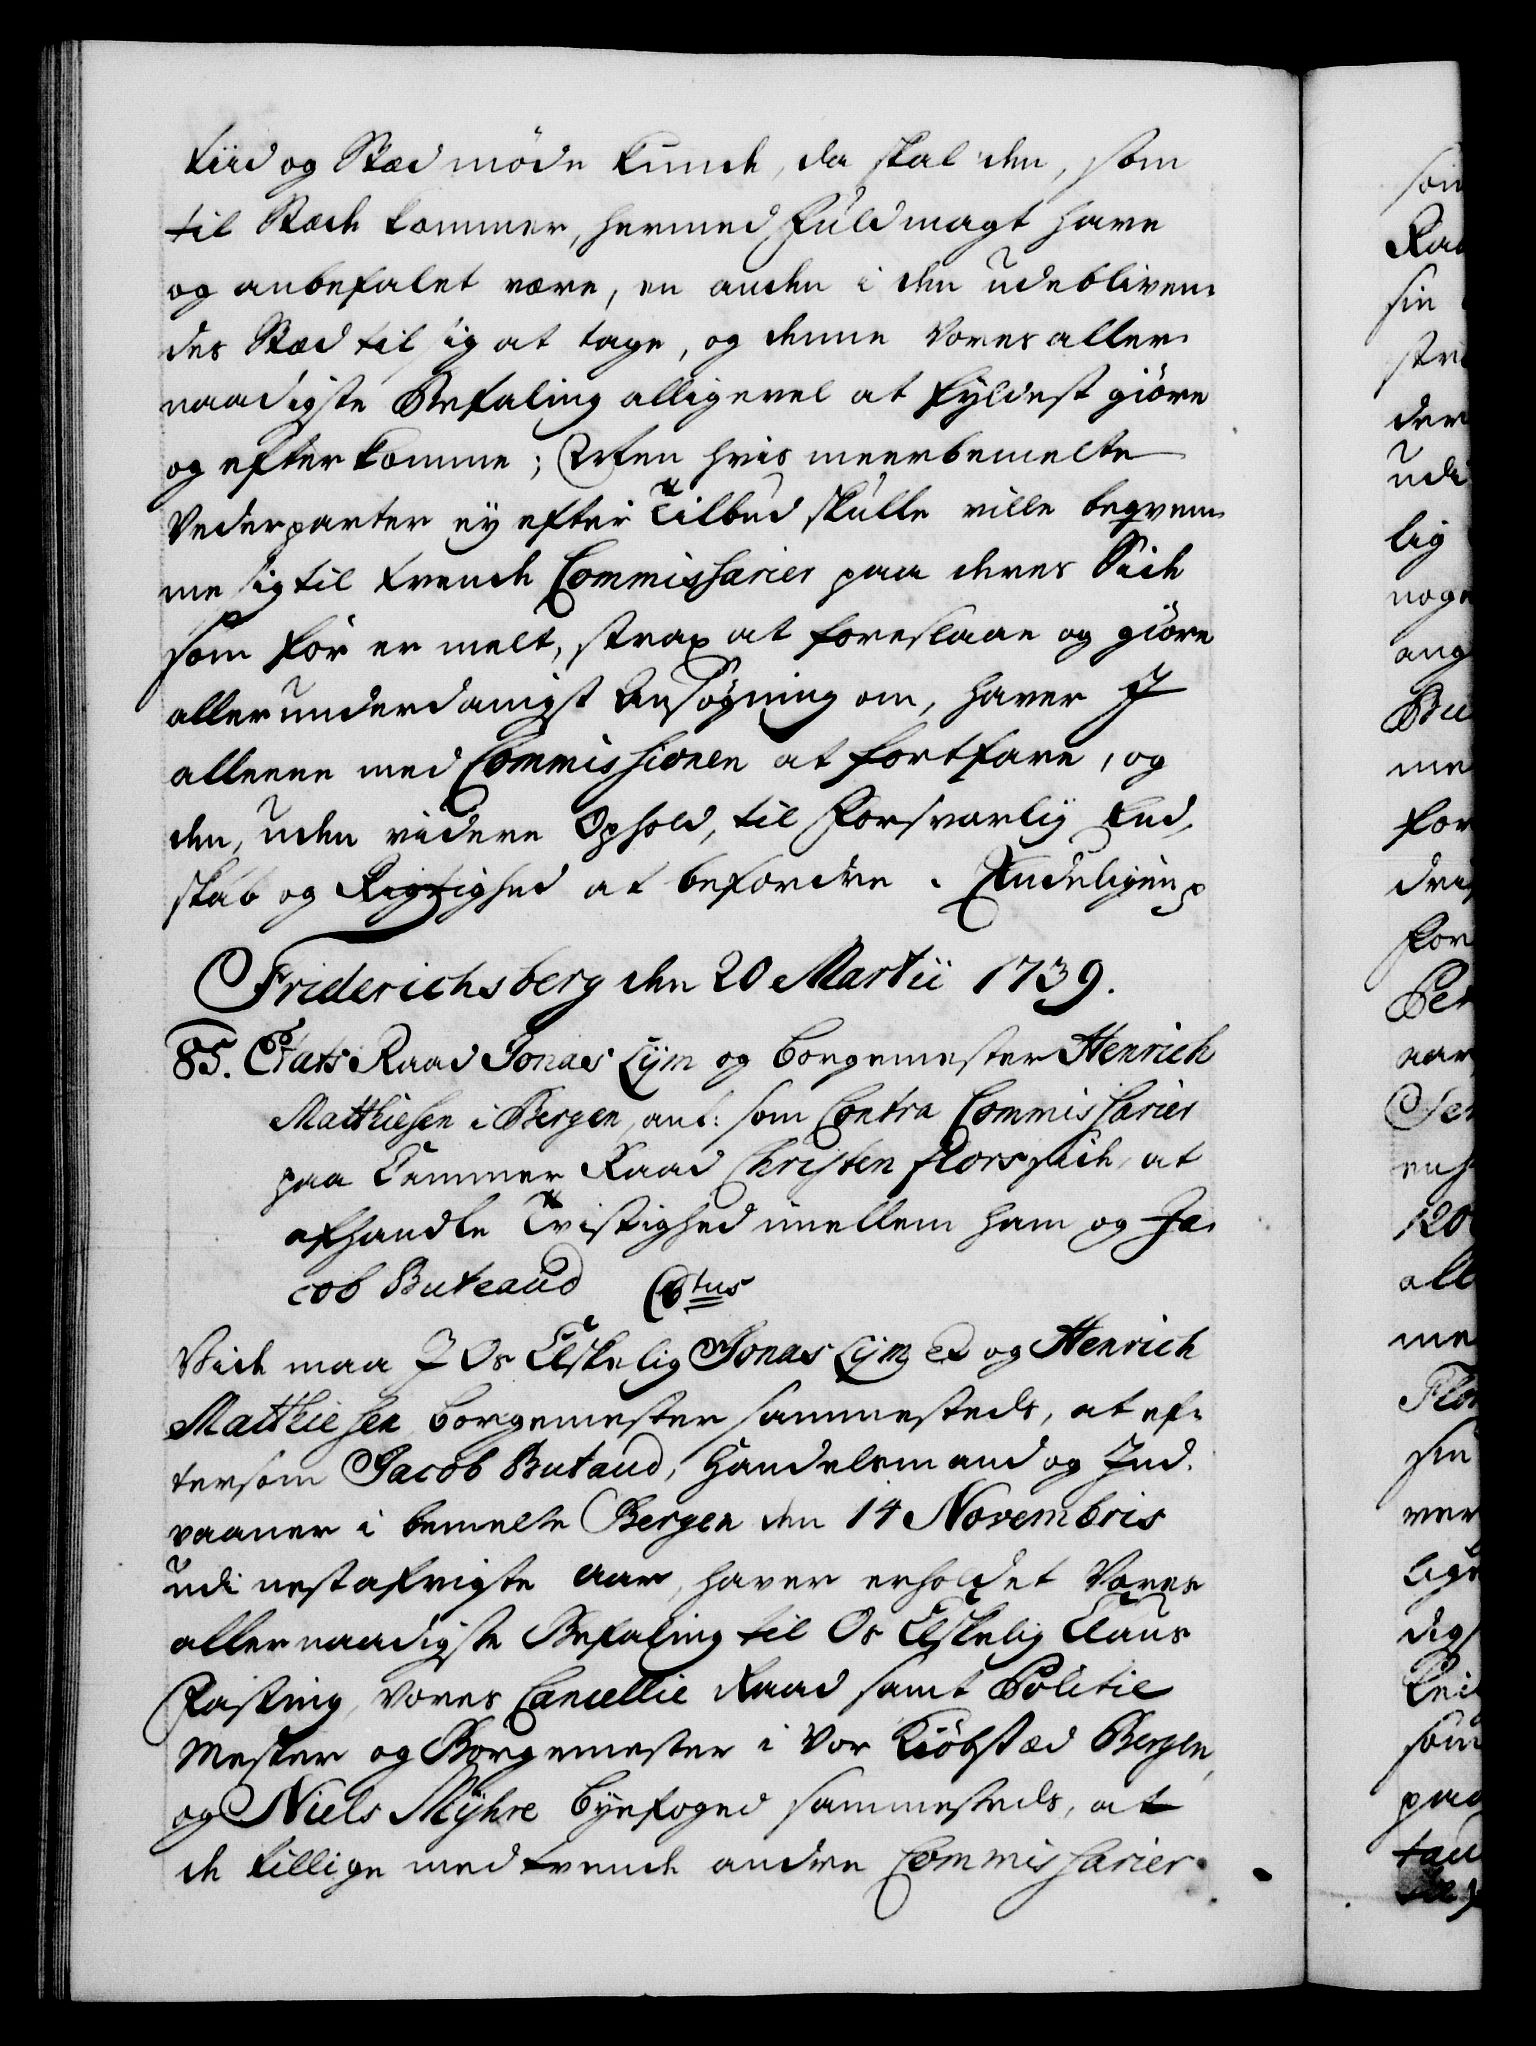 tiid og Stæd møde kunde, da skal den, som
til Stæde kommer, hermed fuldmagt have
og anbefalet være, en anden i den udebliven-
des Stæd til sig at tage, og denne Vores aller-
naadigste Befaling alligevel at fyldest giøre
og efterkomme; Men hvis meerbemelte
Vederparter ey efter Tilbud skulle ville beqvem-
me sig til trende Commissarier paa deres Side
som før er melt, strax at foreslaae og giøre
allerunderdanigst Ansøgning om, haver I
alleene med Commissionen at fortfare, og
den, uden videre Ophold, til forsvarlig End-
skab og Rigtighed at befordre. Endeligen p
Friderichsberg den 20 Martii 1739.
85. Etats Raad Jonas Lÿm og borgemester Henrich
Matthiesen i Bergen, ant: som Contra Commissarier
paa Cammer Raad Christen flors side, at
afhandle Tvistighed imellem ham og Ja-
cob Buteaud Ctus
Vide maa I Os Elskelig Jonas Lÿm og Henrich
Matthiesen, borgemester sammesteds, at ef-
tersom Jacob Butaud, Handelsmand og Ind-
vaaner i bemelte Bergen den 14 Novembris
udi nestafvigte aar, haver erholdet Vores
allernaadigste Befaling til Os Elskelig Claus
Fasting, Vores Cancellie Raad samt Politie
Mester og Borgemester i Vor Kiøbstæd Bergen,
og Niels Mÿhre byefoged sammesteds, at
de tillige med tvende andre Commissarier